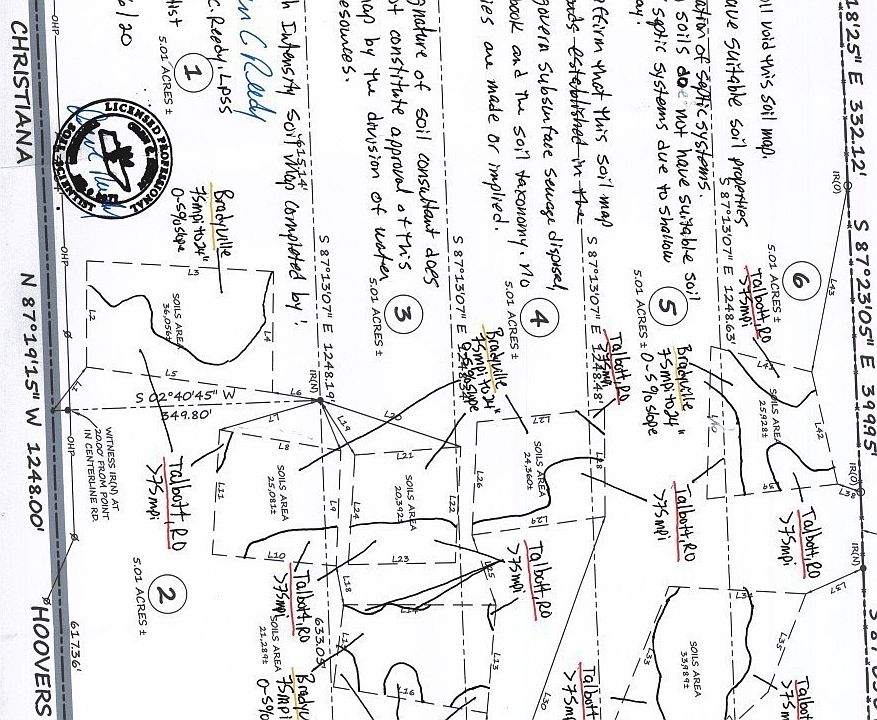 18'25" E 332.12'
S 87°23'05" E 399.95'
ill void this soil map.
ave suitable soil properties
ation of septic systems.
soils do not have suitable soil
septic systems due to shallow
ay.
affirm that this soil map
ards established in the
book and the soil taxonomy. No
ies are made or implied.
govern subsurface sewage disposal
gnature of soil consultant does
ot constitute approval of this
map by the division of water
esources.
h Intensity Soil Map completed by:
n C Reedy
C. Reedy, LPSS
tist
6/20
LICENSED PROFESSIONAL
1
5.01 ACRES ±
2
5.01 ACRES ±
3
5.01 ACRES ±
4
5.01 ACRES ±
5
5.01 ACRES ±
6
5.01 ACRES ±
IR(O)
IR(O)
IR(N)
IR(N)
S 87°13'07" E 1248.63'
S 87°13'07" E 1248.48'
S 87°13'07" E
S 87°13'07" E 1248.19'
615.14'
633.05'
Bradyville
75mpi to 24"
0-5% slope
Bradyville
75mpi to 24"
0-5% slope
Bradyville
75mpi to 24"
0-5% slope
Brady
75mpi
0-5%
Talbott, RO
>75mpi
Talbott, RO
>75mpi
Talbott, RO
>75mpi
Talbott, RO
>75mpi
Talbott, RO
>75mpi
Talbott, RO
>75mpi
Talbott, RO
>75mpi
Talbott
>75m
Talbo
>75m
SOILS AREA
36,056±
SOILS AREA
25,081±
SOILS AREA
20,392±
SOILS AREA
24,360±
SOILS AREA
25,928±
SOILS AREA
33,989±
SOILS AREA
21,289±
L1
L2
L3
L4
L5
L6
L7
L8
L9
L10
L11
L13
L16
L17
L18
L19
L20
L21
L22
L23
L24
L25
L26
L27
L28
L29
L30
L33
L34
L35
L37
L38
L42
L43
S 02°40'45" W
349.80'
WITNESS IR(N) AT
20.00' FROM POINT
IN CENTERLINE RD.
OHP
OHP
OHP
OHP
CHRISTIANA
N 87°19'15" W 1248.00'
HOOVERS
617.36'